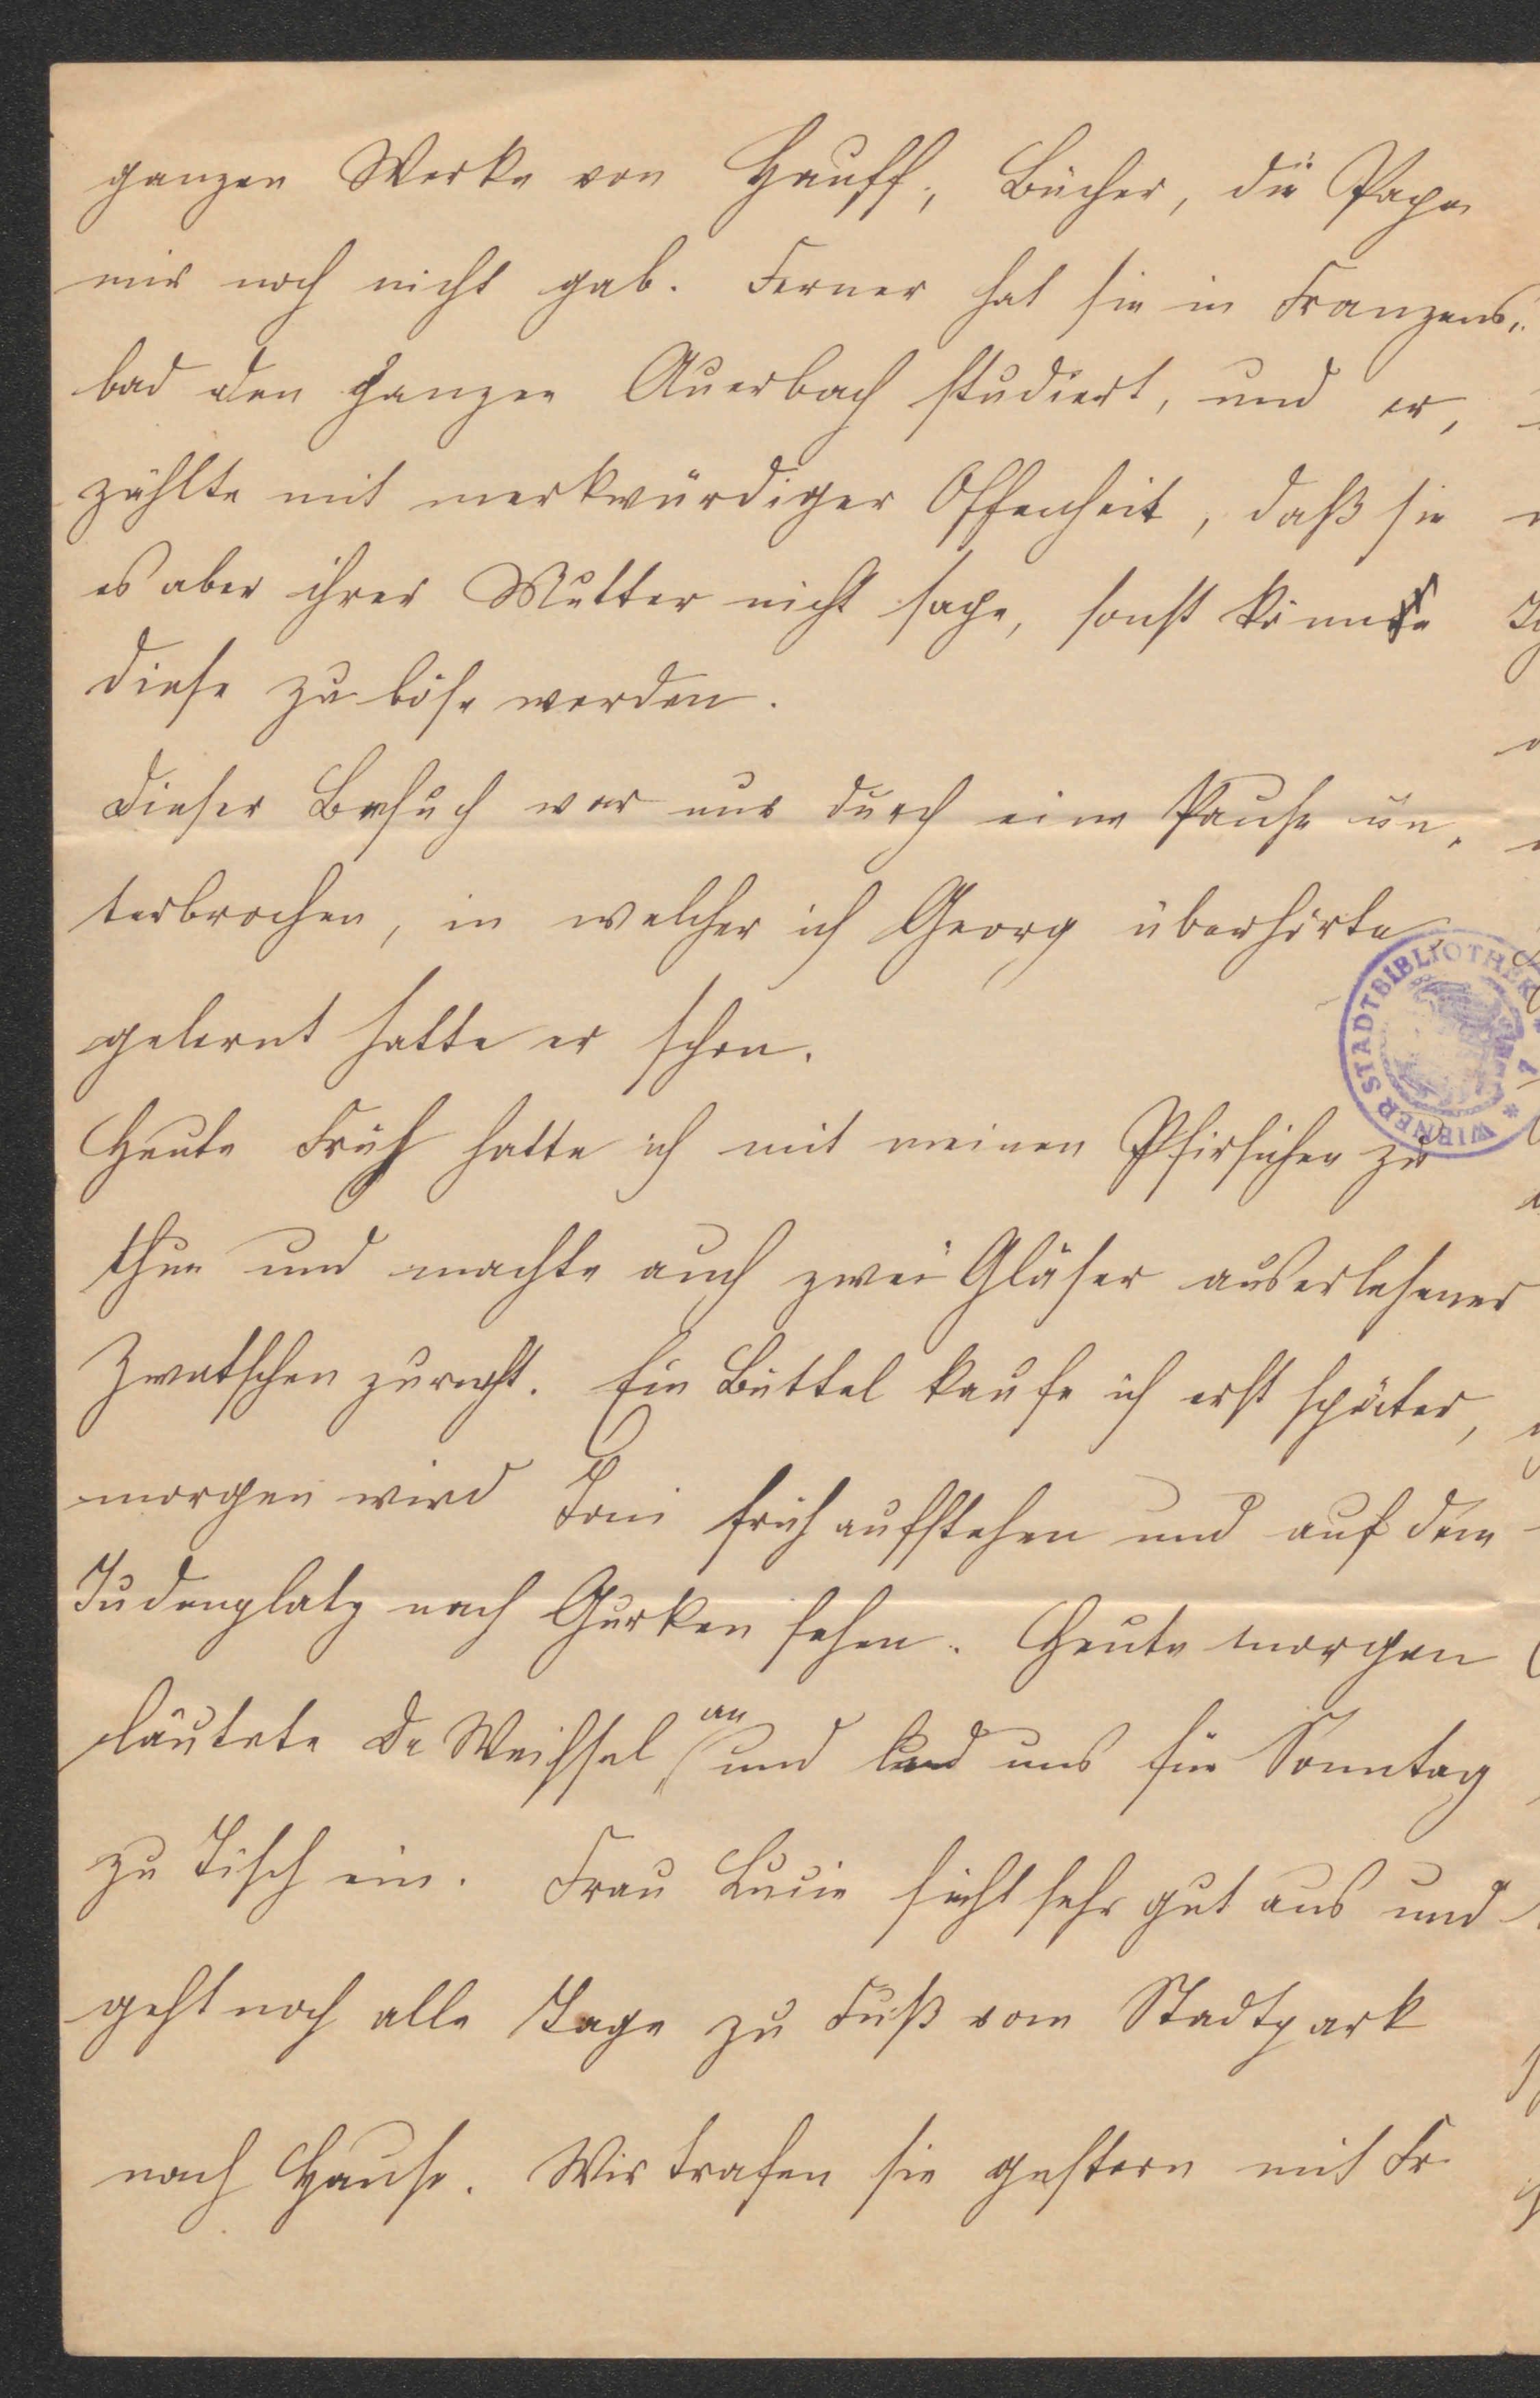 ganzen Werke von Hauff, Bücher, die Papa
mir noch nicht gab. Ferner hat sie in Franzens-
bad den ganzen Auerbach studiert, und er-
zählte mit merkwürdiger Offenheit, daß sie
es aber ihrer Mutter nicht sage, sonst könne
diese zu böse werden.
Dieser Besuch war nur durch eine Pause un-
terbrochen, in welcher ich Georg überhörte
gelernt hatte er schon.
Heute Früh hatte ich mit meinen Pfirsichen zu
thun und machte auch zwei Gläser auserlesener
Zwetschen zurecht. Ein Büttel kaufe ich erst später,
morgen wird Toni früh aufstehen und auf dem
Judenplatz nach Gurken sehen. Heute morgen
läutete Dr Weichsel an und lud uns für Sonntag
zu Tisch ein. Frau Lucie sieht sehr gut aus und
geht noch alle Tage zu Fuß vom Stadtpark
nach Hause. Wir trafen sie gestern mit Fr.
WIENER STADTBIBLIOTHEK